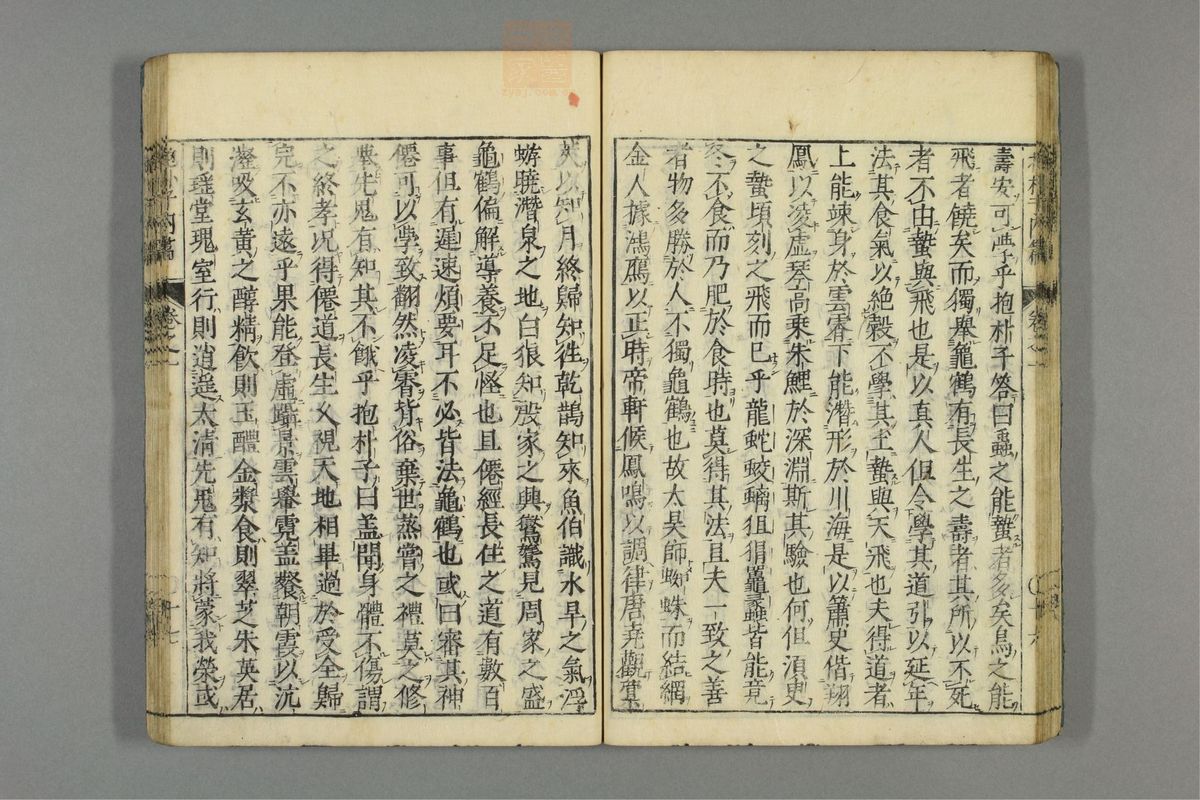 壽安可學乎抱朴子答曰蟲之能蟄者多矣鳥之能
飛者饒矣而獨舉龜鶴有長生之壽者其所以不死
者不由蟄與飛也是以真人但令學其道引以延年
法其食氣以絕穀不學其土蟄與天飛也夫得道者
上能竦身於雲霄下能潛形於川海是以蕭史偕翔
鳳以凌虛琴高乘朱鯉於深淵斯其驗也何但須臾
之蟄頃刻之飛而已乎龍蛇蛟螭狙猬鼉蟸皆能竟
冬不食而乃肥於食時也莫得其法且夫一致之善
者物多勝於人不獨龜鶴也故太昊師蜘蛛而結網
金人據鴻鴈以正時帝軒候鳳鳴以調律唐堯觀蓂
莢以知月終歸知徃乾鵲知來魚伯識水旱之氣浮
蝣曉潛泉之地白狼知殷家之興鸑鷟見周家之盛
龜鶴偏解導養不足怪也且僊經長住之道有數百
事但有遲速煩要耳不必皆法龜鶴也或曰審其神
僊可以學致翻然凌霄背俗棄世蒸嘗之禮莫之修
奠先鬼有知其不餓乎抱朴子曰盖聞身體不傷謂
之終孝况得僊道長生久視天地相畢過於受全歸
完不亦遠乎果能登虛躡景雲轝霓盖餐朝霞以沆
瀣吸玄黃之醇精飲則玉醴金漿食則翠芝朱英居
則瑤堂瑰室行則逍遥太清先鬼有知將蒙我榮或
抱朴子內篇
卷之一
十六
抱朴子內篇
卷之一
十七